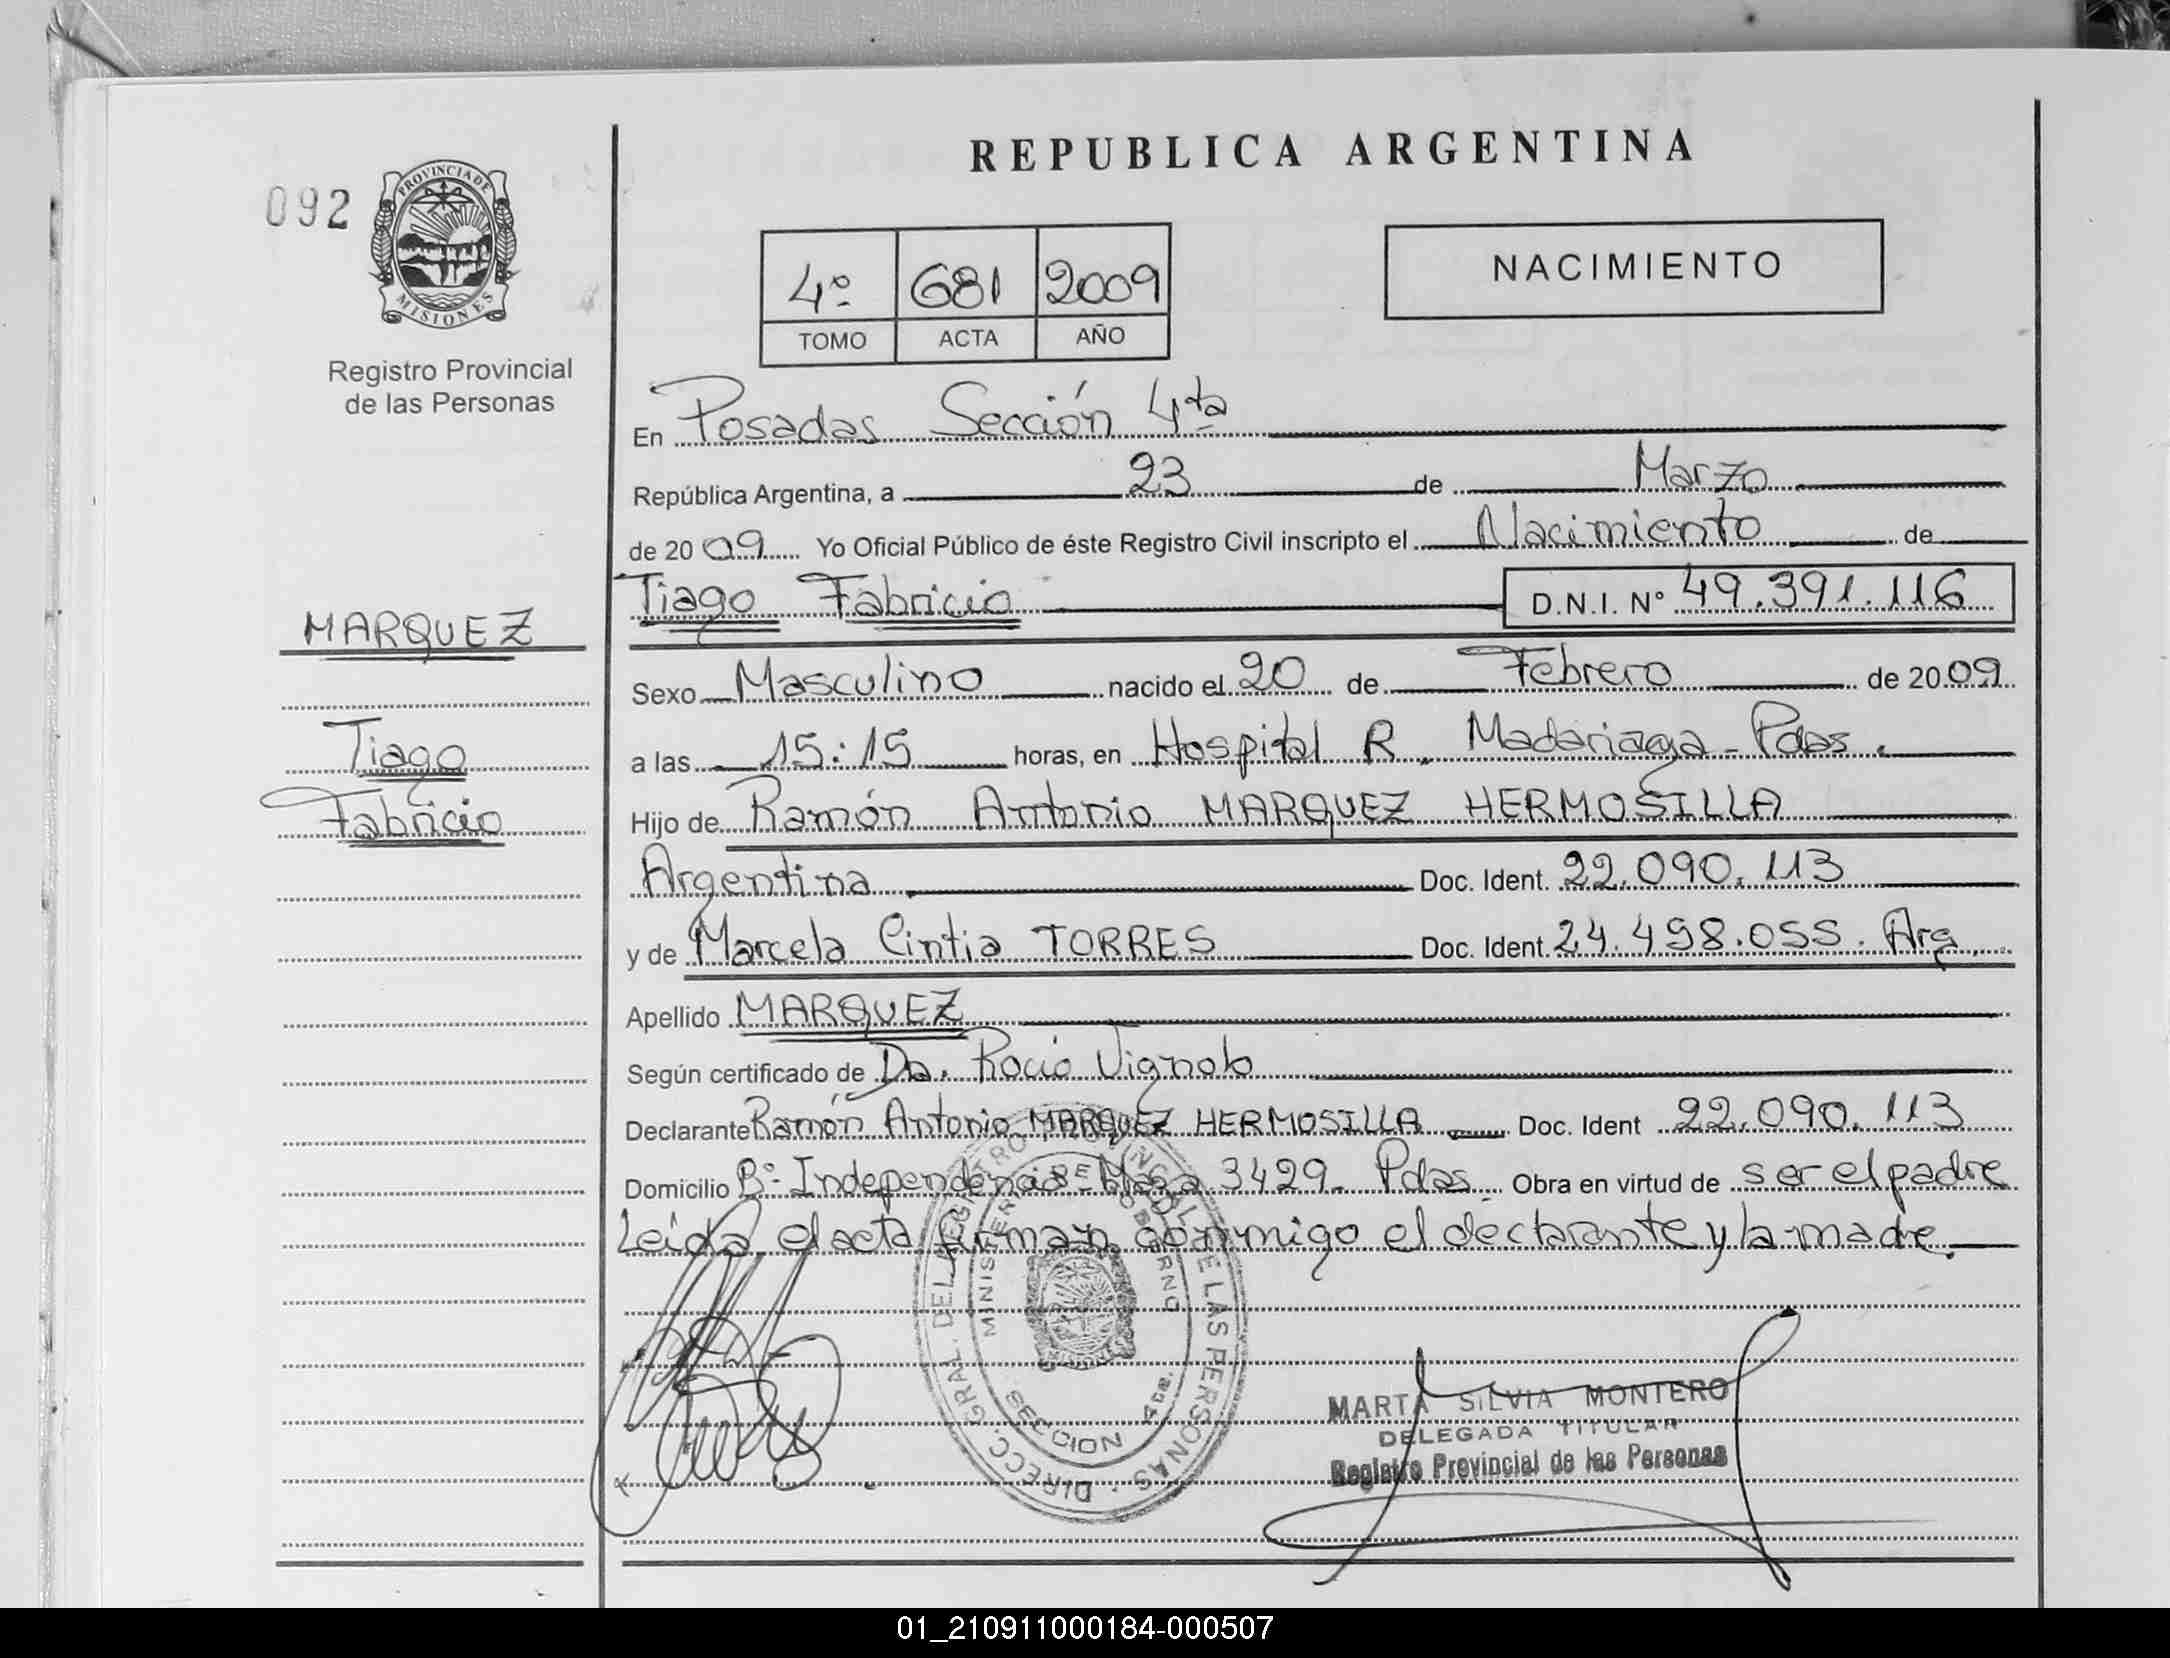 REPUBLICA ARGENTINA
092
PROVINCIA DE
MISIONES
Registro Provincial
de las Personas
4º 681 2009
TOMO ACTA AÑO
NACIMIENTO
En Posadas Sección 4ta
República Argentina, a 23 de Marzo
de 2009 Yo Oficial Público de éste Registro Civil inscripto el Nacimiento de
Tiago Fabricio D.N.I. Nº 49.391.116
MARQUEZ
Sexo Masculino nacido el 20 de Febrero de 2009
Tiago
a las 15:15 horas, en Hospital R. Madariaga - Pdas.
Fabricio
Hijo de Ramón Antonio MARQUEZ HERMOSILLA
Argentina Doc. Ident. 22.090.113
y de Marcela Cintia TORRES Doc. Ident. 24.498.055. Arg.
Apellido MARQUEZ
Según certificado de Da. Rocio Vignolo
Declarante Ramón Antonio MARQUEZ HERMOSILLA Doc. Ident 22.090.113
Domicilio Bº Independencia - 3429 - Pdas. Obra en virtud de ser el padre
Leida el acta firman conmigo el declarante y la madre.
DIREC. GRAL. DEL REGISTRO PROVINCIAL DE LAS PERSONAS
MINISTERIO DE GOBIERNO
SECCION 4ta.
MARTA SILVIA MONTERO
DELEGADA TITULAR
Registro Provincial de las Personas
01_210911000184-000507